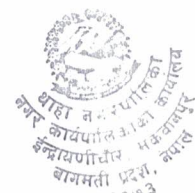 थाहा नगरपालिका
नगर कार्यपालिकाको कार्यालय
ईन्द्रायणीचौर, मकवानपुर
बागमती प्रदेश, नेपाल